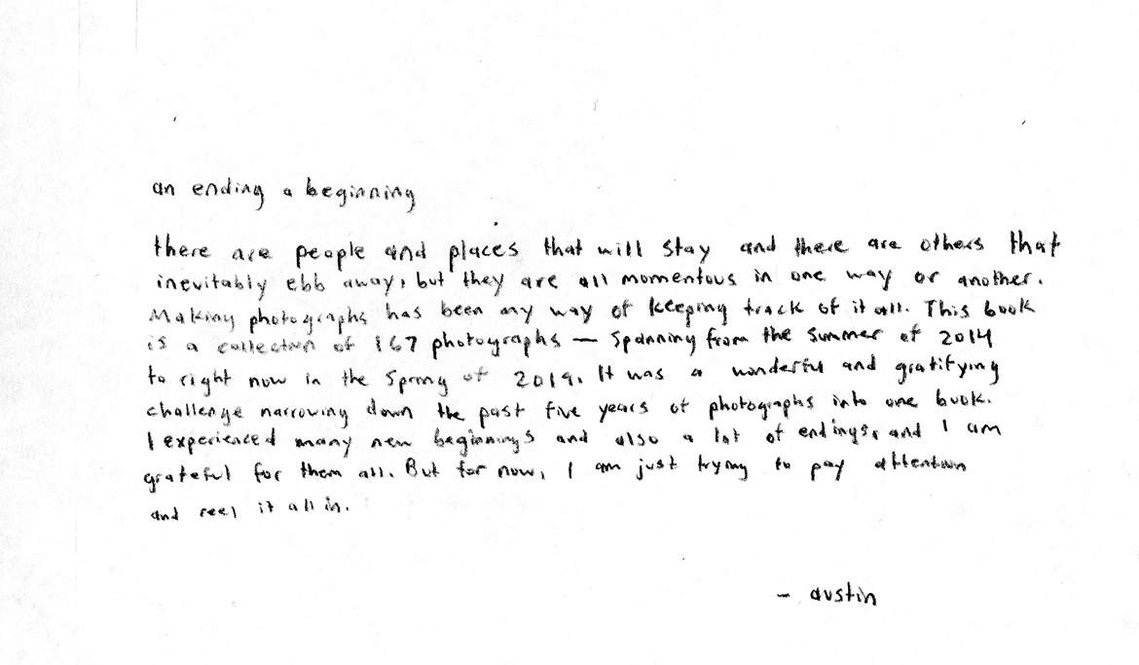 an ending a beginning
there are people and places that will stay and there are others that
inevitably ebb away, but they are all momentous in one way or another.
Making photographs has been my way of keeping track of it all. This book
is a collection of 167 photographs — Spanning from the Summer of 2014
to right now in the Spring of 2019. It was a wonderful and gratifying
challenge narrowing down the past five years of photographs into one book.
I experienced many new beginnings and also a lot of endings, and I am
grateful for them all. But for now, I am just trying to pay attention
and reel it all in.
- austin